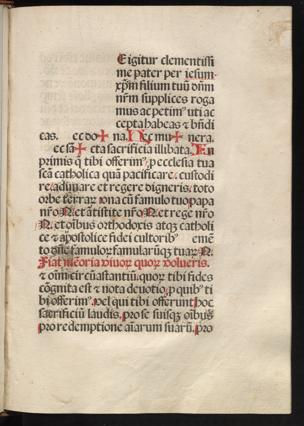 E igitur clementissi
me pater per iesum
xp̄m filium tuū dn̄m
nr̄m supplices roga
mus ac petim⁹ uti ac
cepta habeas & bn̄di
cas. ec do✠na. Hec mu✠nera.
ec sā✠cta sacrificia illibata. In
primis q̄ tibi offerim⁹. p ecclesia tua
sc̄a catholica quā pacificare. custodi
re. adunare et regere digneris. toto
orbe terrarꝝ. una cū famulo tuo papa
nr̄o N. et ātistite nr̄o N. et rege nr̄o
N. et oībus orthodoxis atq3 catholi
ce & apostolice fidei cultorib⁹
emē
to dn̄e famuloꝝ famularūq3 tuaꝝ N.
Fiat memoria viuoꝝ quoꝝ volueris.
& oīm circūastantiū. quoꝝ tibi fides
cōgnita est & nota deuotio. p quib⁹ ti
bi offerim⁹. vel qui tibi offerunt hoc
sacrificiū laudis. pro se suisq3 oībus
pro redemptione aīarum suarū. pro